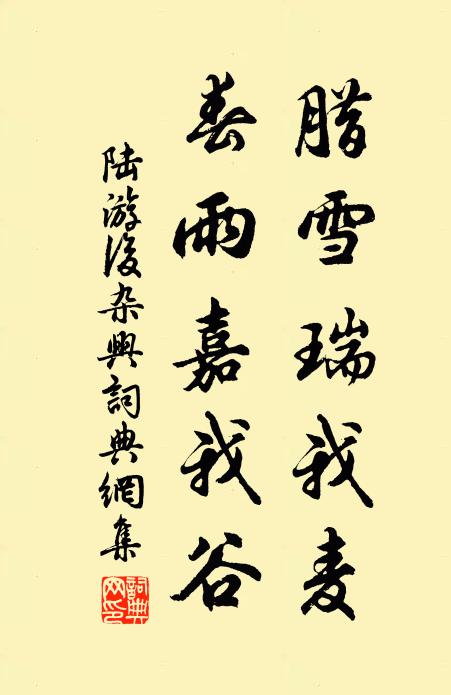 腊雪瑞我麦
春雨嘉我谷
陆游後杂興詞典網集
詞典网印